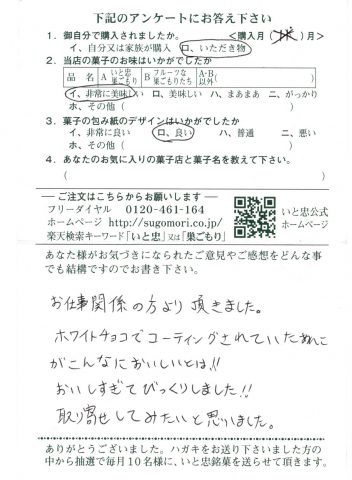 下記のアンケートにお答え下さい
1. 御自分で購入されましたか。 <購入月( )月>
イ、自分又は家族が購入 ロ、いただき物
2. 当店の菓子のお味はいかがでしたか
品名 A いと忠巣ごもり B フルーツな巣ごもりたち A・B以外( )
イ、非常に美味しい ロ、美味しい ハ、まあまあ ニ、がっかり
ホ、その他( )
3. 菓子の包み紙のデザインはいかがでしたか
イ、非常に良い ロ、良い ハ、普通 ニ、悪い
ホ、その他( )
4. あなたのお気に入りの菓子店と菓子名を教えて下さい。
( )
―ご注文はこちらからお願いします―
フリーダイヤル 0120-461-164
ホームページ http://sugomori.co.jp
楽天検索キーワード「いと忠」又は「巣ごもり」
いと忠公式
ホームページ
あなた様がお気づきになられたご意見やご感想をどんな事
でも結構ですのでお書き下さい。
お仕事関係の方より頂きました。
ホワイトチョコでコーティングされていたあんこ
がこんなにおいしいとは!!
おいしすぎてびっくりしました!!
取り寄せしてみたいと思いました。
ありがとうございました。ハガキをお送り下さいました方の
中から抽選で毎月10名様に、いと忠銘菓を送らせて頂きます。